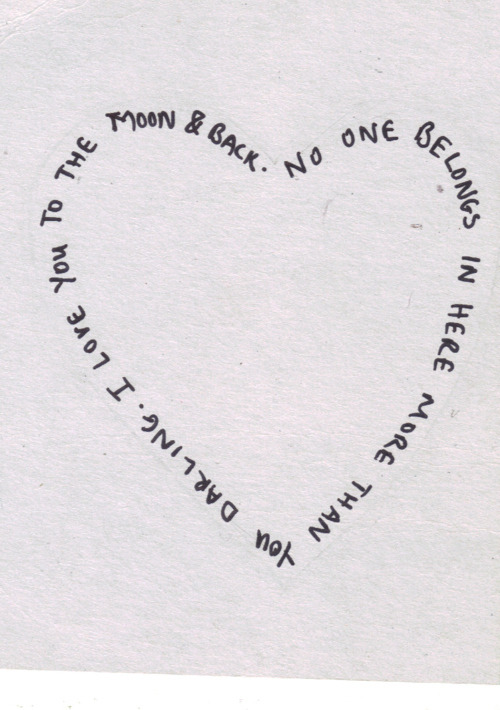 NO ONE BELONGS IN HERE MORE THAN YOU DARLING. I LOVE YOU TO THE MOON & BACK.